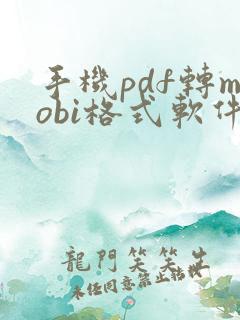 手機pdf轉m
obi格式軟件
龍門笑笑生
未經同意禁止轉載